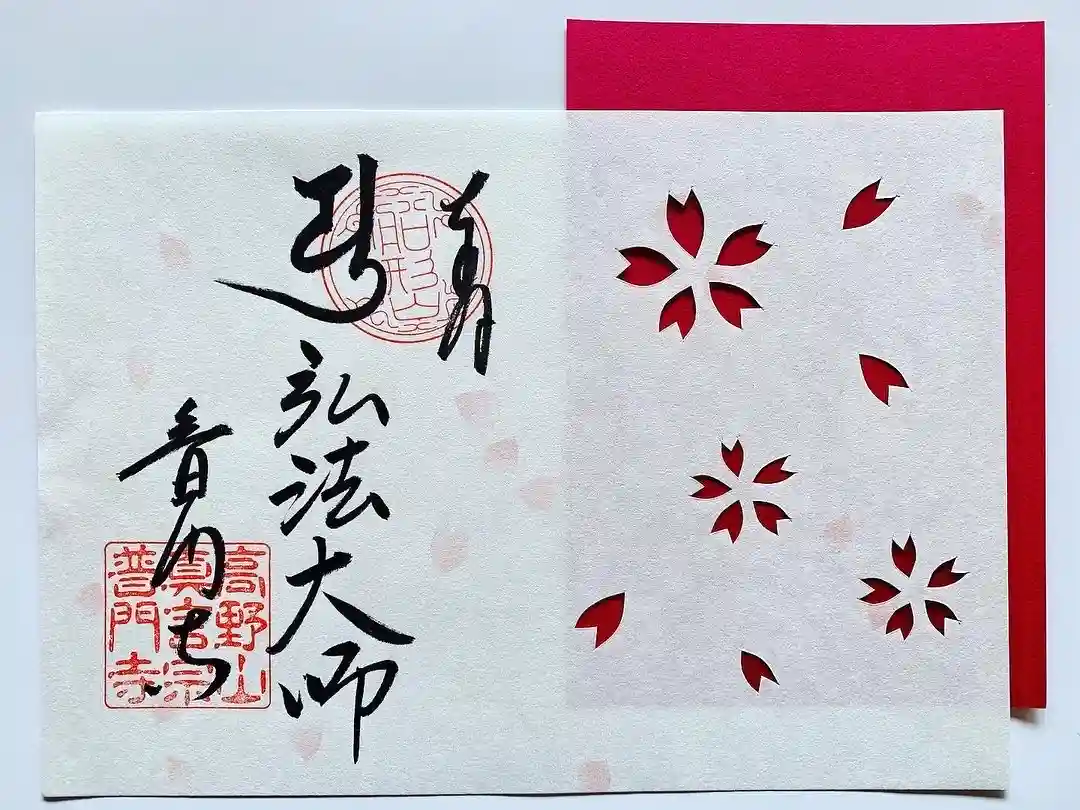 奉拝
弘法大師
普門寺
高野山
真言宗
普門寺